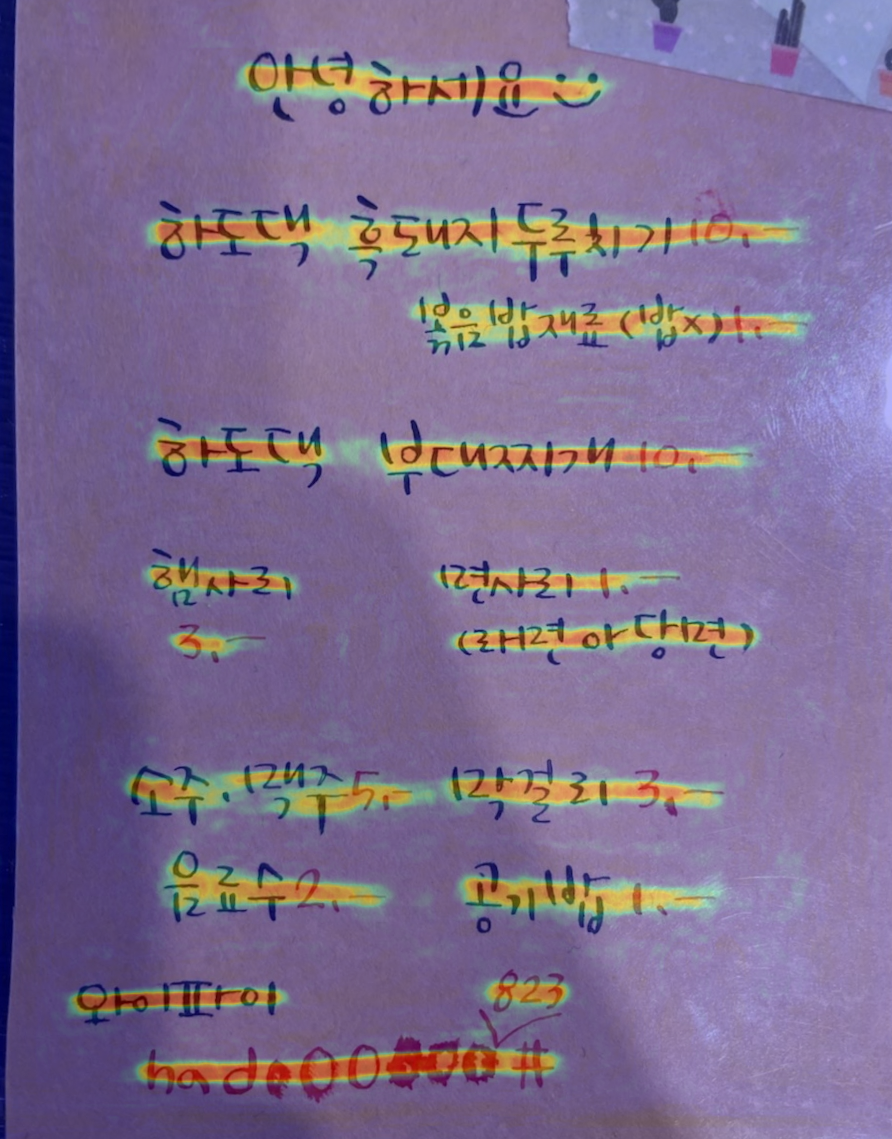 안녕하세요 :)
하도댁 흑돼지두루치기 10.-
볶음밥재료(밥x) 1.-
하도댁 부대찌개 10.-
햄사리 면사리 1.-
3.- (라면 or 당면)
소주.맥주 5.- 막걸리 3.-
음료수 2.- 공기밥 1.-
와이파이 823
#